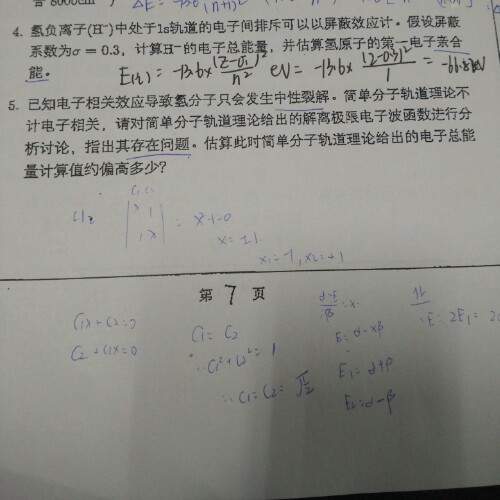 含 8000cm
4. 氢负离子(H⁻)中处于1s轨道的电子间排斥可以以屏蔽效应计。假设屏蔽
系数为σ = 0.3，计算H⁻的电子总能量，并估算氢原子的第一电子亲合
能。 E(r) = -13.6 × (Z-σ)²/n² eV = -13.6 × (2-0.3)²/1 =
5. 已知电子相关效应导致氢分子只会发生中性裂解。简单分子轨道理论不
计电子相关，请对简单分子轨道理论给出的解离极限电子波函数进行分
析讨论，指出其存在问题。估算此时简单分子轨道理论给出的电子总能
量计算值约偏高多少？
C₁ C₂
H₂ | x 1 |
| 1 x |
x = ±1
x₁ = -1, x₂ = +1
第 7 页
C₁x + C₂ = 0
C₂ + C₁x = 0
C₁ = C₂
∴ C₁² + C₂² = 1
∴ C₁ = C₂ =
α-E/β = x
E = α - xβ
E₁ = α + β
E₂ = α - β
∴ E = 2E₁ =